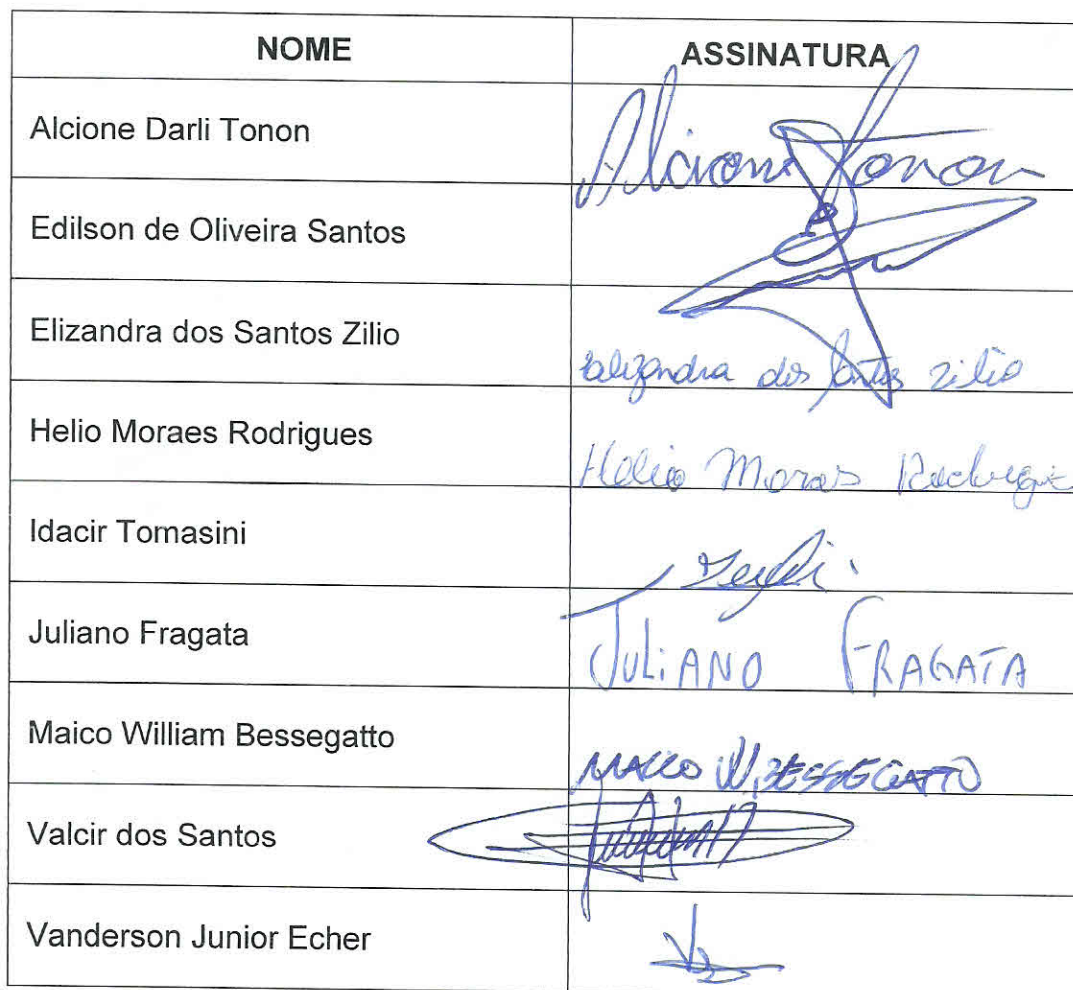 NOME ASSINATURA
Alcione Darli Tonon Alcione Tonon
Edilson de Oliveira Santos
Elizandra dos Santos Zilio Elizandra dos Santos Zilio
Helio Moraes Rodrigues Helio Moraes
Idacir Tomasini
Juliano Fragata JULIANO FRAGATA
Maico William Bessegatto MAICO W. BESSEGATTO
Valcir dos Santos
Vanderson Junior Echer